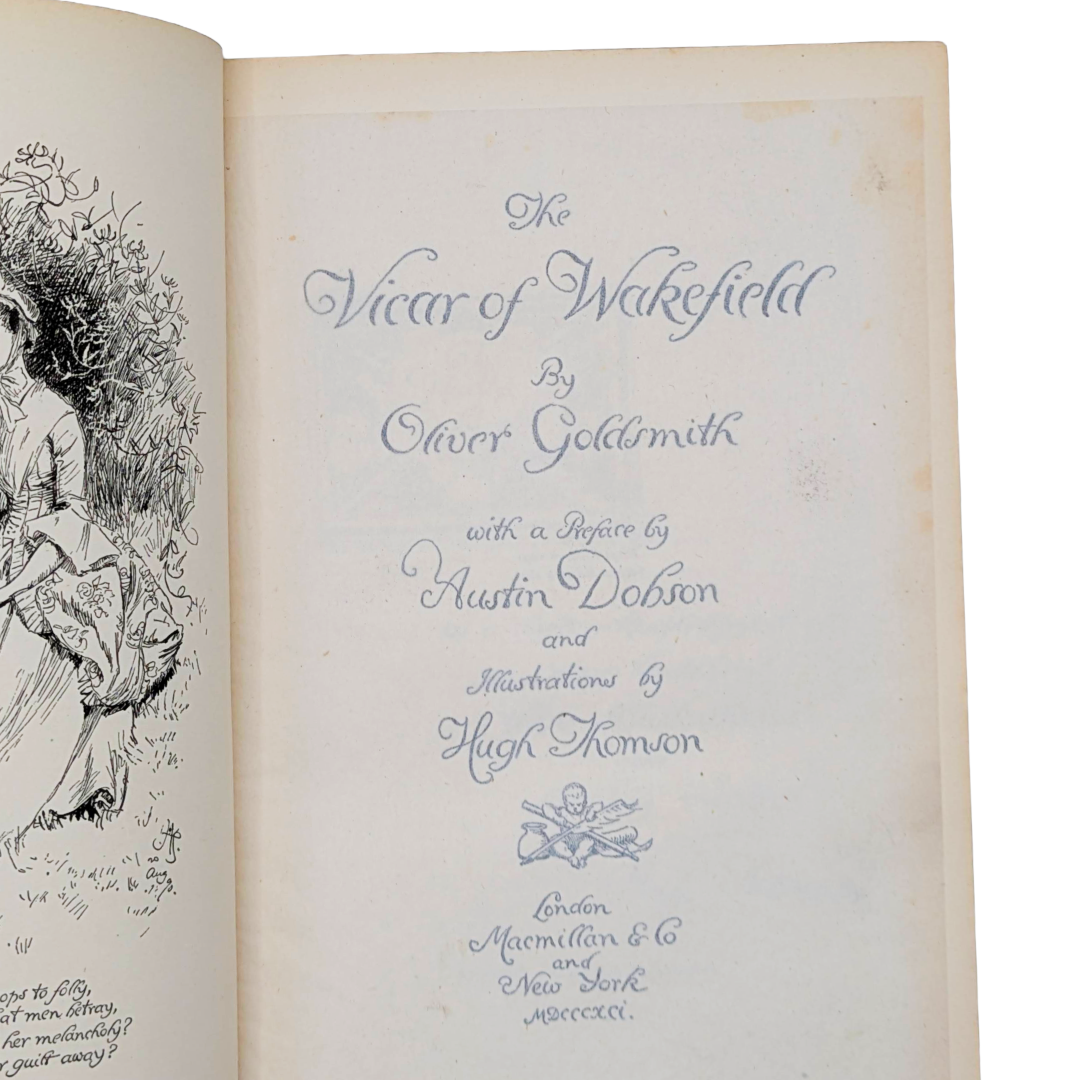 ops to folly,
at men betray,
her melancholy?
r guilt away?
The
Vicar of Wakefield
By
Oliver Goldsmith
with a Preface by
Austin Dobson
and
Illustrations by
Hugh Thomson
London
Macmillan & Co
and
New York
MDCCCXCI.